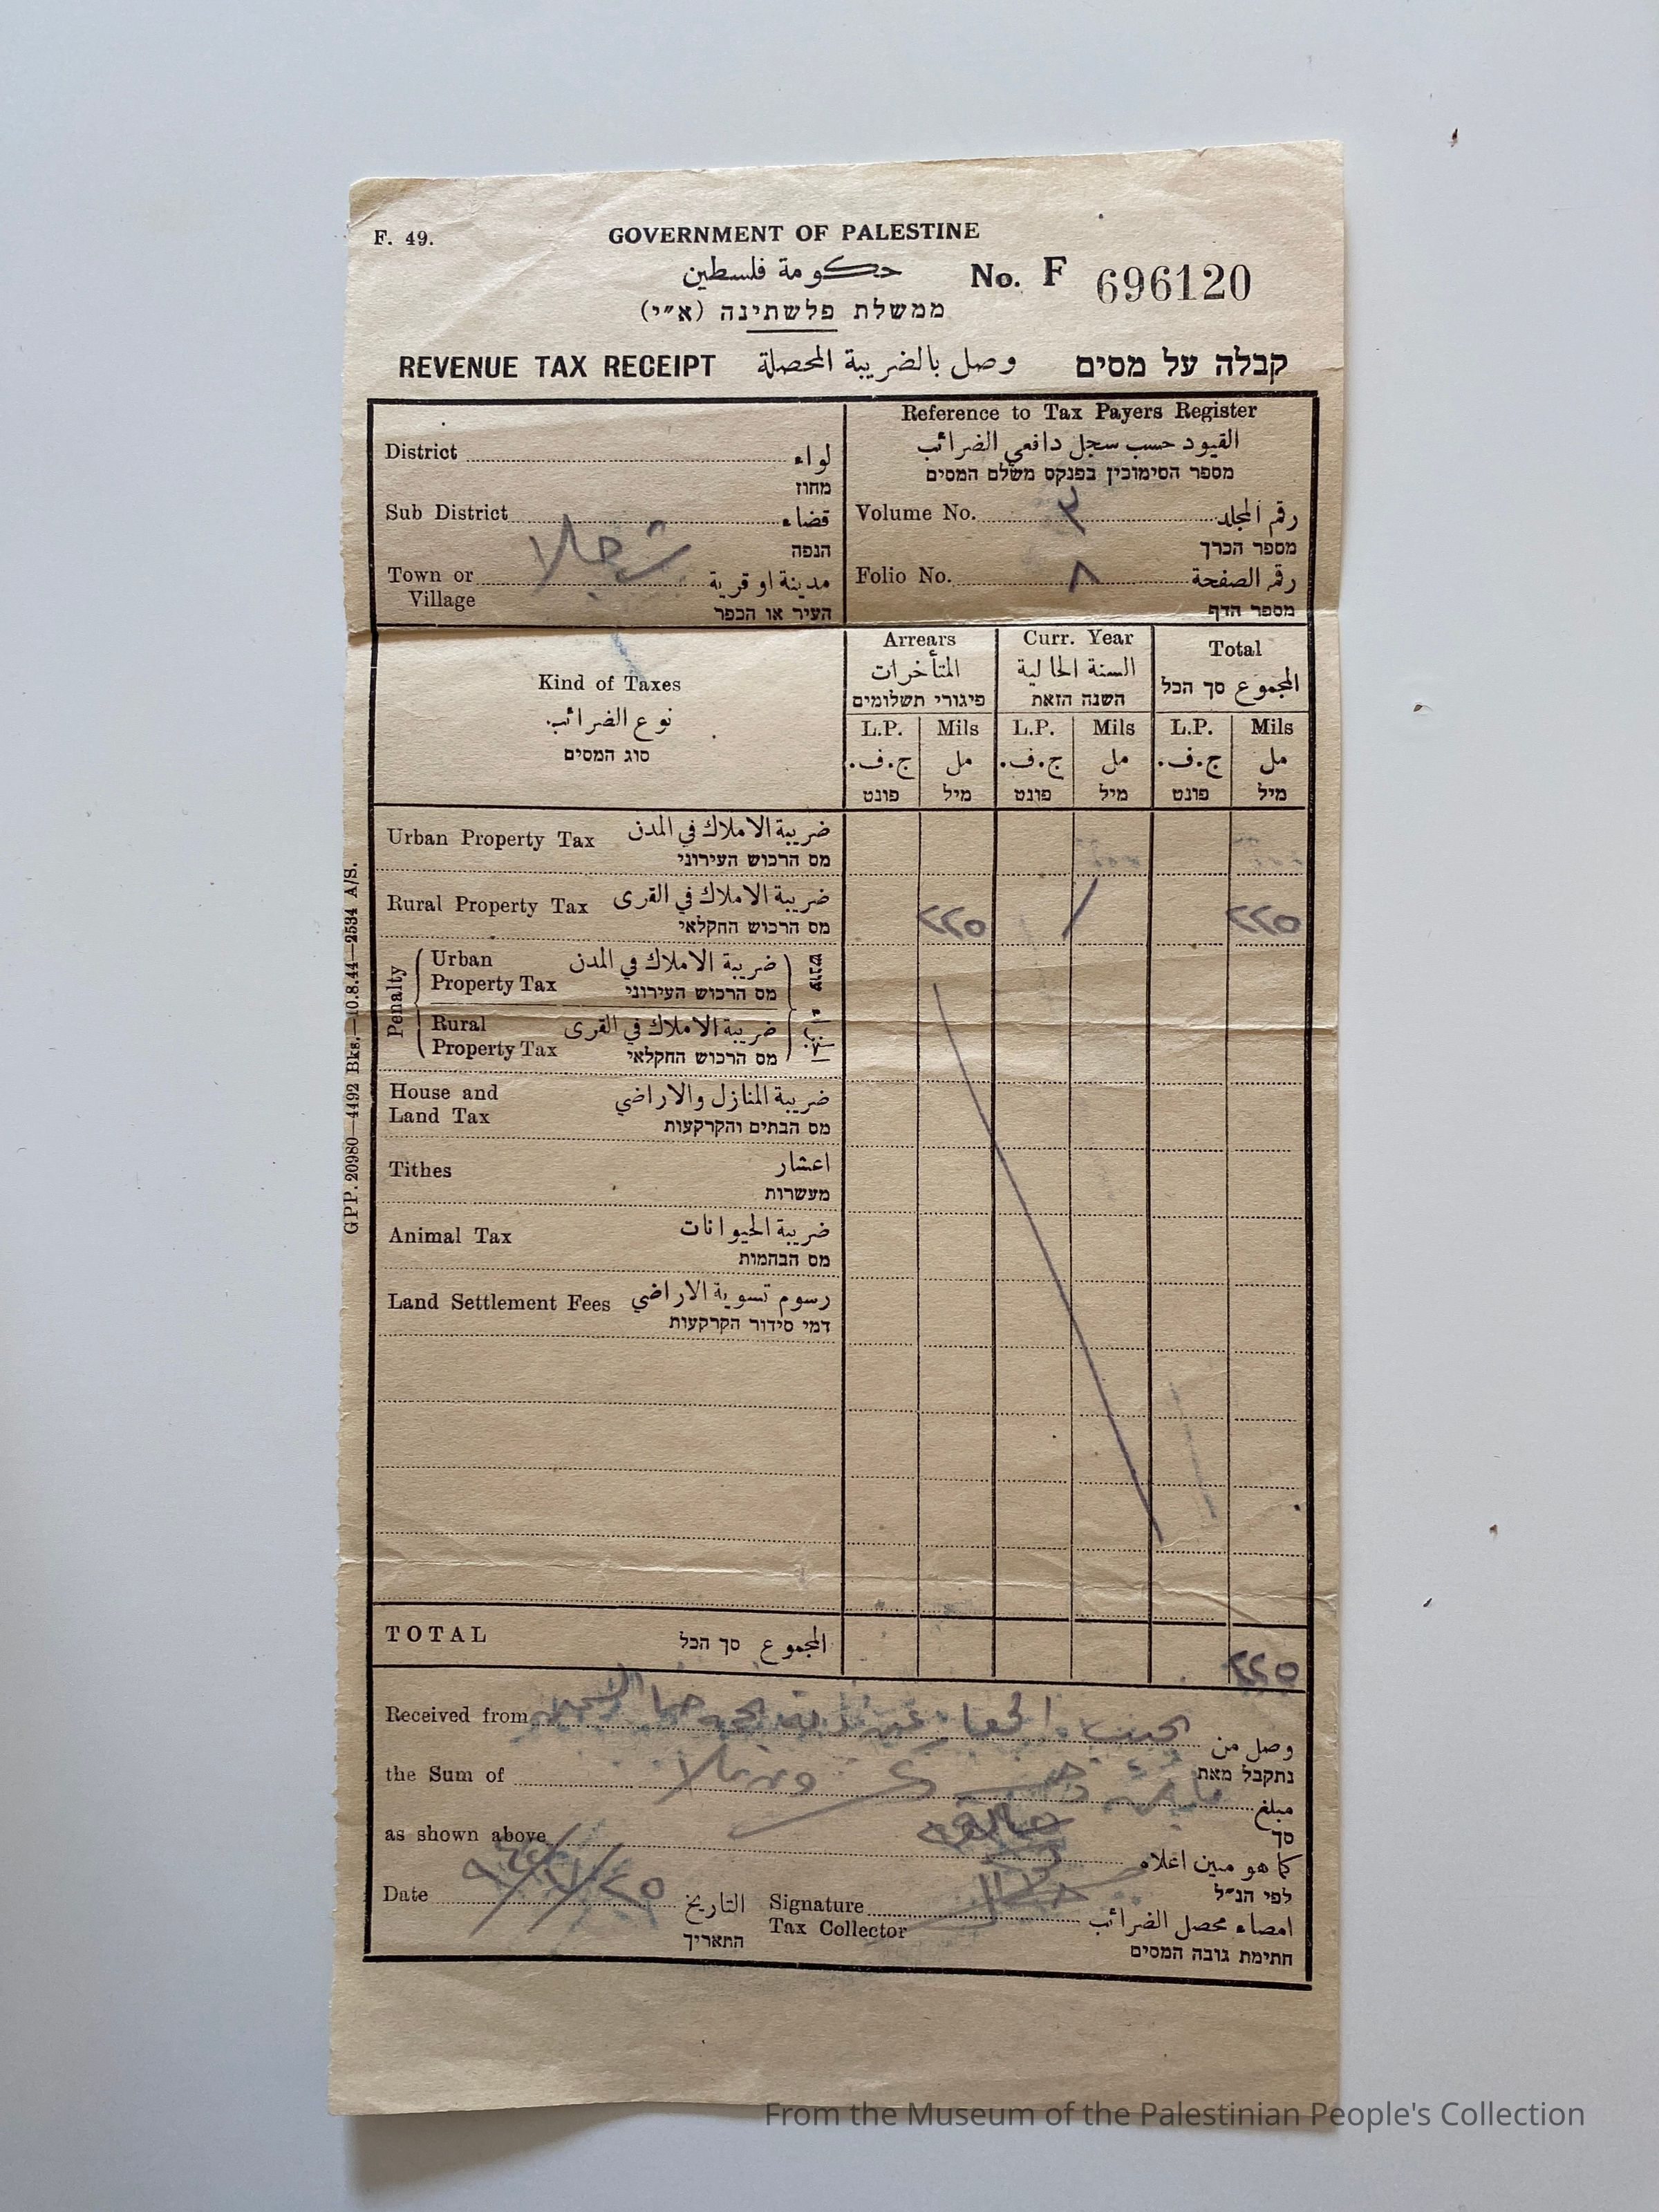 F. 49.
GOVERNMENT OF PALESTINE
حكومة فلسطين
No. F 696120
ממשלת פלשתינה (א״י)
REVENUE TAX RECEIPT وصل بالضريبة المحصلة קבלה על מסים
Reference to Tax Payers Register
القيود حسب سجل دافعي الضرائب
מספר הסימוכין בפנקס משלם המסים
District لواء
מחוז
Sub District قضاء
הנפה
Town or Village مدينة او قرية
העיר או הכפר
Volume No. ٣ رقم المجلد
מספר הכרך
Folio No. ٨ رقم الصفحة
מספר הדף
Kind of Taxes
نوع الضرائب.
סוג המסים
Arrears
المتأخرات
פיגורי תשלומים
Curr. Year
السنة الحالية
השנה הזאת
Total
المجموع סך הכל
L.P. Mils L.P. Mils L.P. Mils
ج.ف. مل ج.ف. مل ج.ف. مل
פונט מיל פונט מיל פונט מיל
Urban Property Tax ضريبة الاملاك في المدن
מס הרכוש העירוני
Rural Property Tax ضريبة الاملاك في القرى ٢٢٥ ٢٢٥
מס הרכוש החקלאי
Penalty
Urban Property Tax ضريبة الاملاك في المدن
מס הרכוש העירוני
עונש
Rural Property Tax ضريبة الاملاك في القرى
מס הרכוש החקלאי
House and Land Tax ضريبة المنازل والاراضي
מס הבתים והקרקעות
Tithes اعشار
מעשרות
Animal Tax ضريبة الحيوانات
מס הבהמות
Land Settlement Fees رسوم تسوية الاراضي
דמי סידור הקרקעות
TOTAL المجموع סך הכל ٢٢٥
Received from وصل من
נתקבל מאת
the Sum of مبلغ
סך
as shown above كما هو مبين اعلاه
לפי הנ״ל
Date التاريخ
התאריך
Signature Tax Collector امضاء محصل الضرائب
חתימת גובה המסים
GPP. 20980—4492 Bks.—10.8.44—2534 A/S.
From the Museum of the Palestinian People's Collection